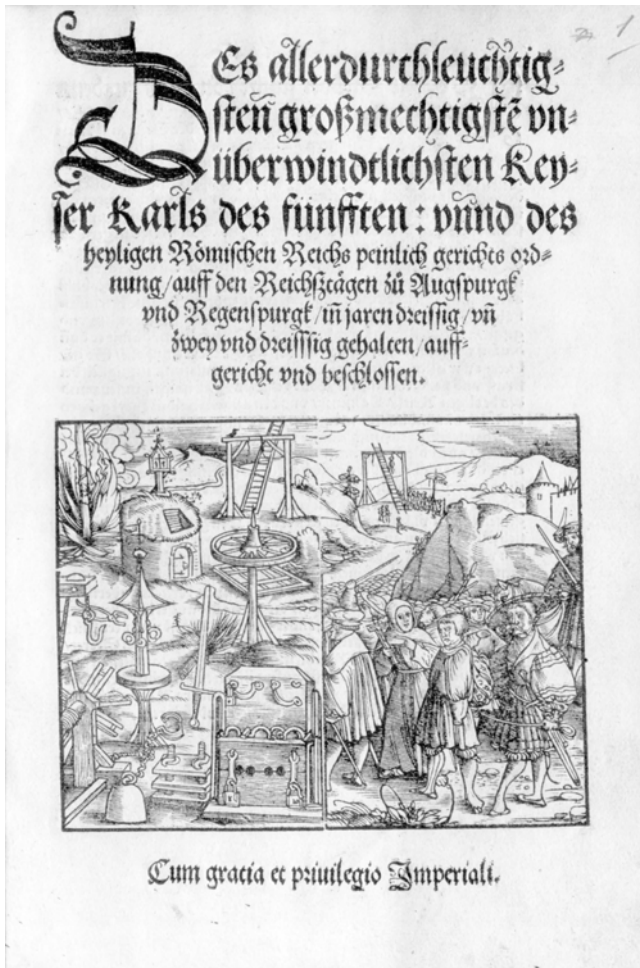 DEs allerdurchleuchtig⸗
sten̄ großmechtigstē vn⸗
überwindtlichsten Key⸗
ser Karls des fünfften: vnnd des
heyligen Römischen Reichs peinlich gerichts ord⸗
nung/auff den Reichsztägen zů Augspurgk
vnd Regenspurgk/in̄ jaren dreissig/vn̄
zwey vnd dreisssig gehalten/auff⸗
gericht vnd beschlossen.
Cum gracia et priuilegio Imperiali.